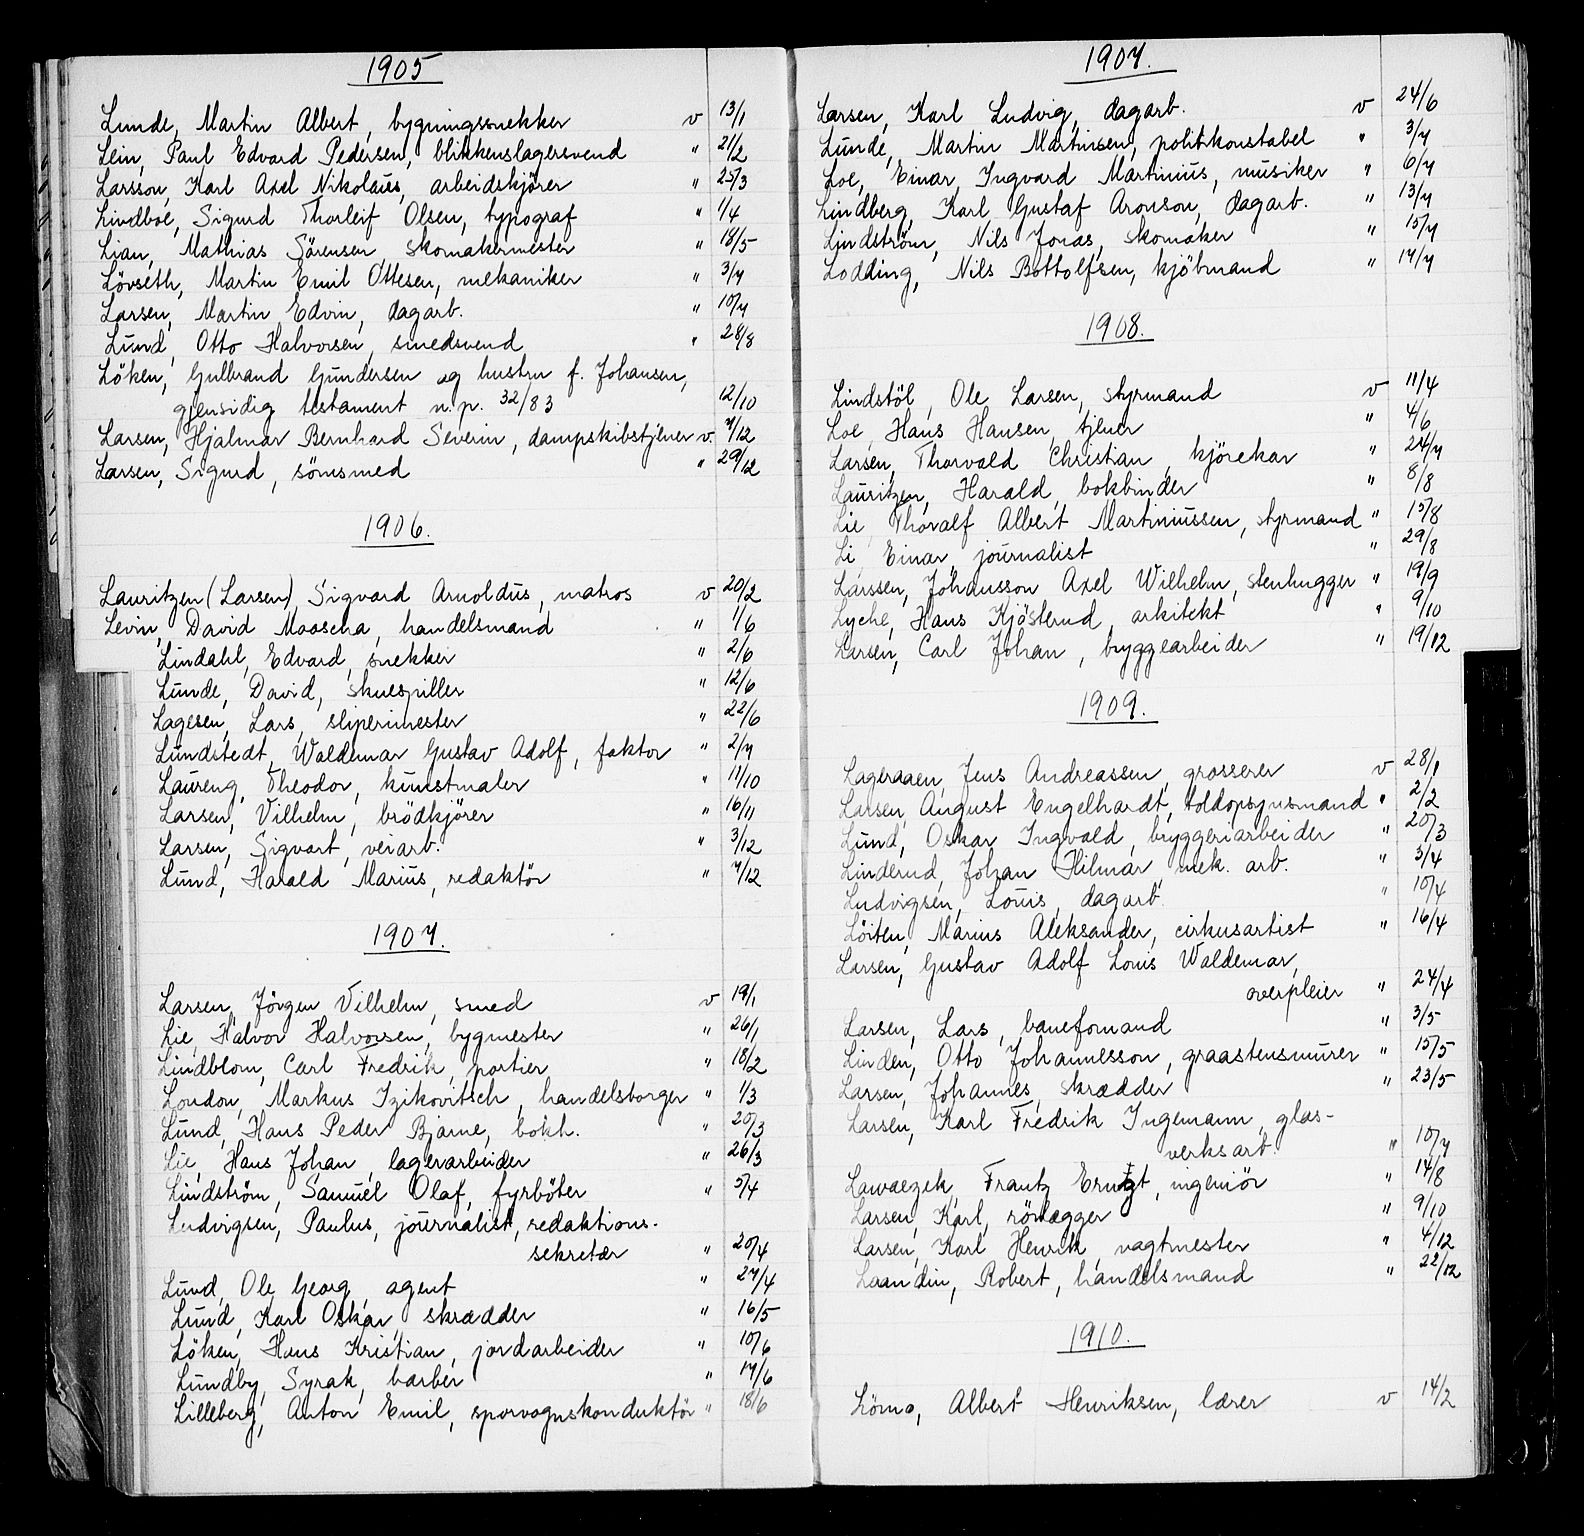 1905
Lunde, Martin Albert, bygningssnekker v 13/1
Lein, Paul Edvard Pedersen, blikkenslagersvend " 21/2
Larsson, Karl Axel Nikolaus, arbeidskjører " 25/3
Lindboe, Sigurd Thorleif Olsen, typograf " 1/4
Lian, Mathias Sörensen, skomakermester " 18/5
Lövseth, Martin Emil Ottesen, mekaniker " 3/7
Larsen, Martin Edvin, dagarb. " 10/7
Lund, Otto Halvorsen, smedsvend " 28/8
Löken, Gulbrand Gundersen og hustru f. Johansen,
gjensidig testament n.p. 32/83 12/10
Larsen, Hjalmar Bernhard Severin, dampskibstjener v. 7/12
Larsen, Sigurd, sömsmed " 29/12
1906.
Lauritzen (Larsen), Sigvard Arnoldus, matros v 20/2
Levin, David Mooscha, handelsmand " 1/6
Lindahl, Edvard, snekker " 2/6
Lunde, David, skuespiller " 12/6
Lagesen, Lars, sliperimester " 22/6
Lundstedt, Waldemar Gustav Adolf, faktor " 2/7
Laureng, Theodor, kunstmaler " 11/10
Larsen, Vilhelm, brödkjörer " 16/11
Larsen, Sigvart, veiarb. " 3/12
Lund, Harald Marius, redaktör " 7/12
1907.
Larsen, Jörgen Vilhelm, smed v 19/1
Lie, Halvor Halvorsen, bygmester " 26/1
Lindblom, Carl Fredrik, portier " 18/2
London, Markus Izikovitsch, handelsborger " 1/3
Lund, Hans Peder Bjarne, bokh. " 20/3
Lie, Hans Johan, lagerarbeider " 26/3
Lindström, Samuel Olaf, fyrböter " 5/4
Ludvigsen, Paulus, journalist, redaktions-
sekretær " 20/4
Lund, Ole Georg, agent " 27/4
Lund, Karl Oskar, skrædder " 16/5
Löken, Hans Kristian, jordarbeider " 10/6
Lundby, Syrak, barber " 17/6
Lilleberg, Anton Emil, sporvognskonduktör " 18/6
1907.
Larsen, Karl Ludvig, dagarb. v 24/6
Lunde, Martin Martinsen, politikonstabel " 3/7
Loe, Einar Ingvard Martinius, musiker " 6/7
Lindberg, Karl Gustaf Aronson, dagarb. " 13/7
Lindström, Nils Jonas, skomaker " 15/7
Lodding, Nils Bottolfsen, kjöbmand " 17/7
1908.
Lindstöl, Ole Larsen, styrmand v 11/4
Loe, Hans Hansen, tjener " 4/6
Larsen, Thorvald Christian, kjörekar " 24/7
Lauritzen, Harald, bokbinder " 8/8
Lie, Thoralf Albert Martiniussen, styrmand " 15/8
Li, Einar, journalist " 29/8
Larssen, Johansson Axel Wilhelm, stenhugger " 19/9
Lyche, Hans Kjösterud, arkitekt " 9/10
Larsen, Carl Johan, bryggearbeider " 19/12
1909.
Lageraaen, Jens Andreassen, grosserer v 28/1
Larsen, August Engelhardt, toldopsynsmand " 2/2
Lund, Oskar Ingvald, bryggeriarbeider " 20/3
Linderud, Johan Hilmar, mek. arb. " 3/4
Ludvigsen, Louis, dagarb. " 10/4
Löiten, Marius Aleksander, cirkusartist " 16/4
Larsen, Gustav Adolf Louis Waldemar,
overpleier " 24/4
Larsen, Lars, baneformand " 3/5
Linden, Otto Johannesson, graastensmurer " 15/5
Larsen, Johannes, skrædder " 23/5
Larsen, Karl Fredrik Ingemann, glas-
verksarb. " 10/7
Lawaezek, Frantz Ernst, ingeniör " 14/8
Larsen, Karl, rörlægger " 9/10
Larsen, Karl Henrik, vagtmester " 4/12
Laandin, Robert, handelsmand " 22/12
1910.
Lömo, Albert Henriksen, lærer v 14/2